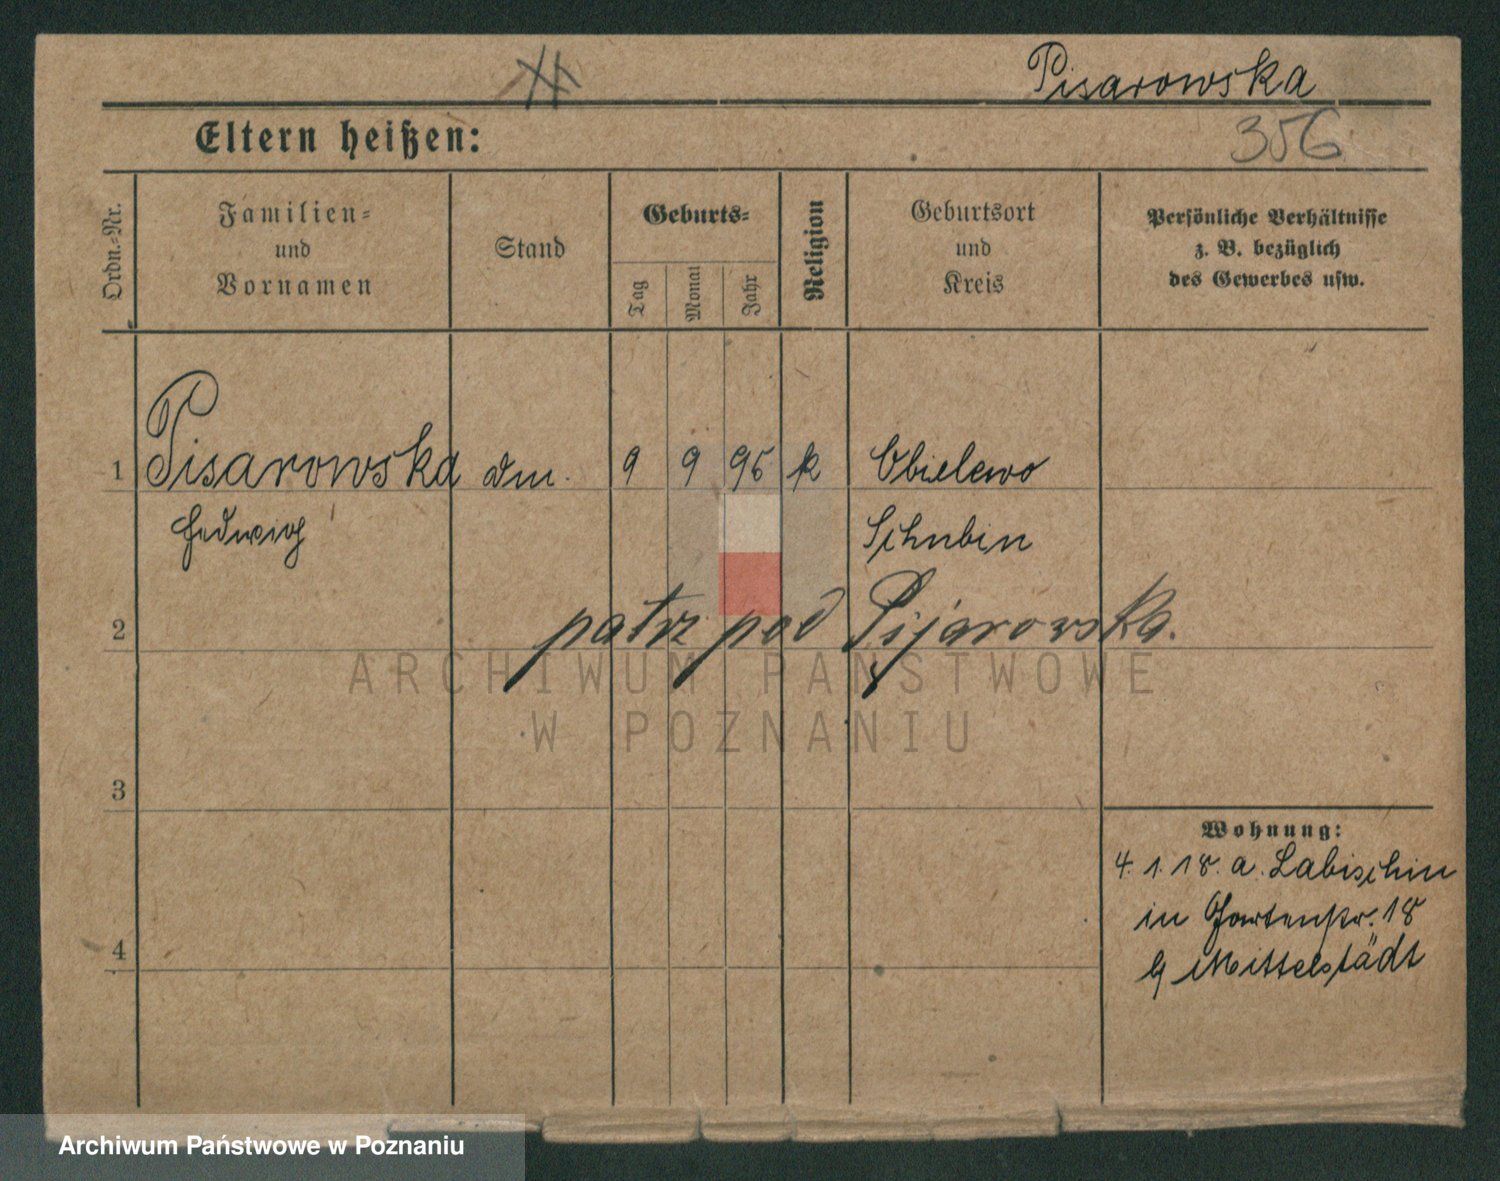 Pisarowska
356
Eltern heißen:
Ordn.-Nr.
Familien-
und
Vornamen
Stand
Geburts-
Tag
Monat
Jahr
Religion
Geburtsort
und
Kreis
Persönliche Verhältnisse
z. B. bezüglich
des Gewerbes usw.
1 Pisarowska dm. 9 9 95 k Obielewo
Hedwig Schubin
2 patrz pod Pijarowska.
ARCHIWUM PAŃSTWOWE
W POZNANIU
3
Wohnung:
4. 1. 18. a. Labischin
in Gartenstr. 18
b/ Mittelstädt
4
Archiwum Państwowe w Poznaniu